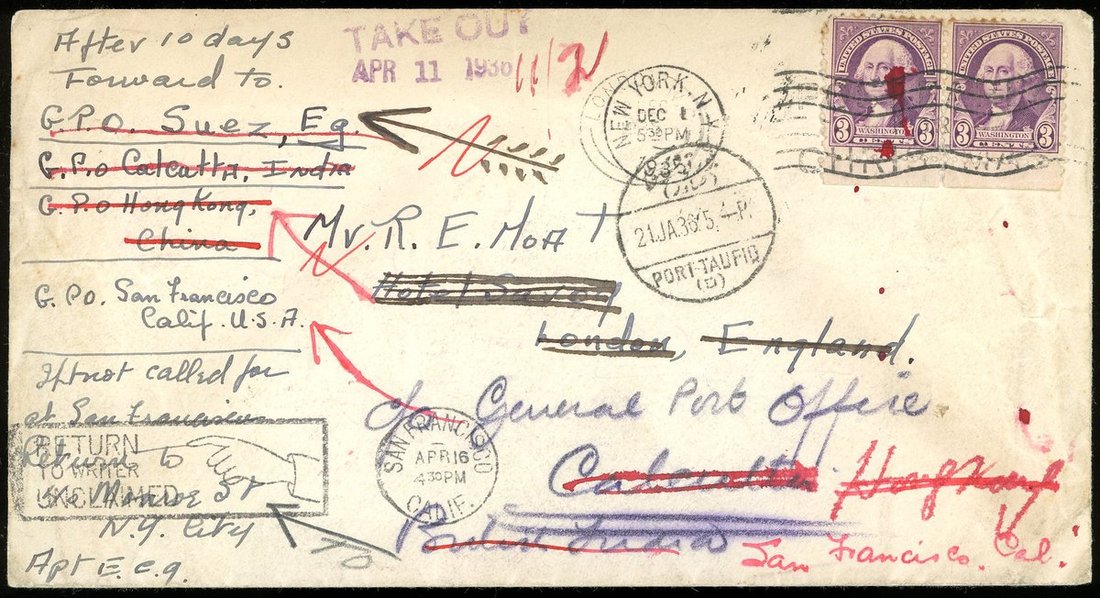 After 10 days
Forward to
G.P.O. Suez, Eg.
G.P.O Calcutta, India
G.P.O Hong Kong,
China
G. P.O. San Francisco
Calif. U.S.A.
If not called for
at San Francisco
Return to
Monroe St
N.Y. City
Apt E.e.9.
RETURN
TO WRITER
UNCLAIMED
TAKE OUT
APR 11 1936
11/2
NEW YORK, N.Y.
DEC
5 30 PM
1935
21.JA.36. 5 -P.
PORT-TAUFIQ
(B)
UNITED STATES POSTAGE
3 WASHINGTON 3
UNITED STATES POSTAGE
3 WASHINGTON 3
Mr. R. E. Moat
Hotel Savoy
London, England.
c/o General Post Office
Calcutta Hong Kong
British India
San Francisco. Cal.
SAN FRANCISCO
APR 16
4 30 PM
CALIF.